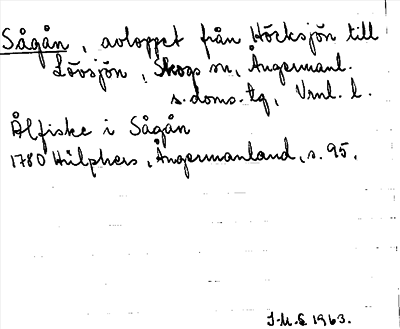 Sågån, avloppet från Hörksjön till
Lövsjön, Skogs sn, Ångermanl.
s. doms. tg, Vrnl. l.
Ålfiske i Sågån
1780 Hülphers, Ångermanland, s. 95.
J.M.E 1963.